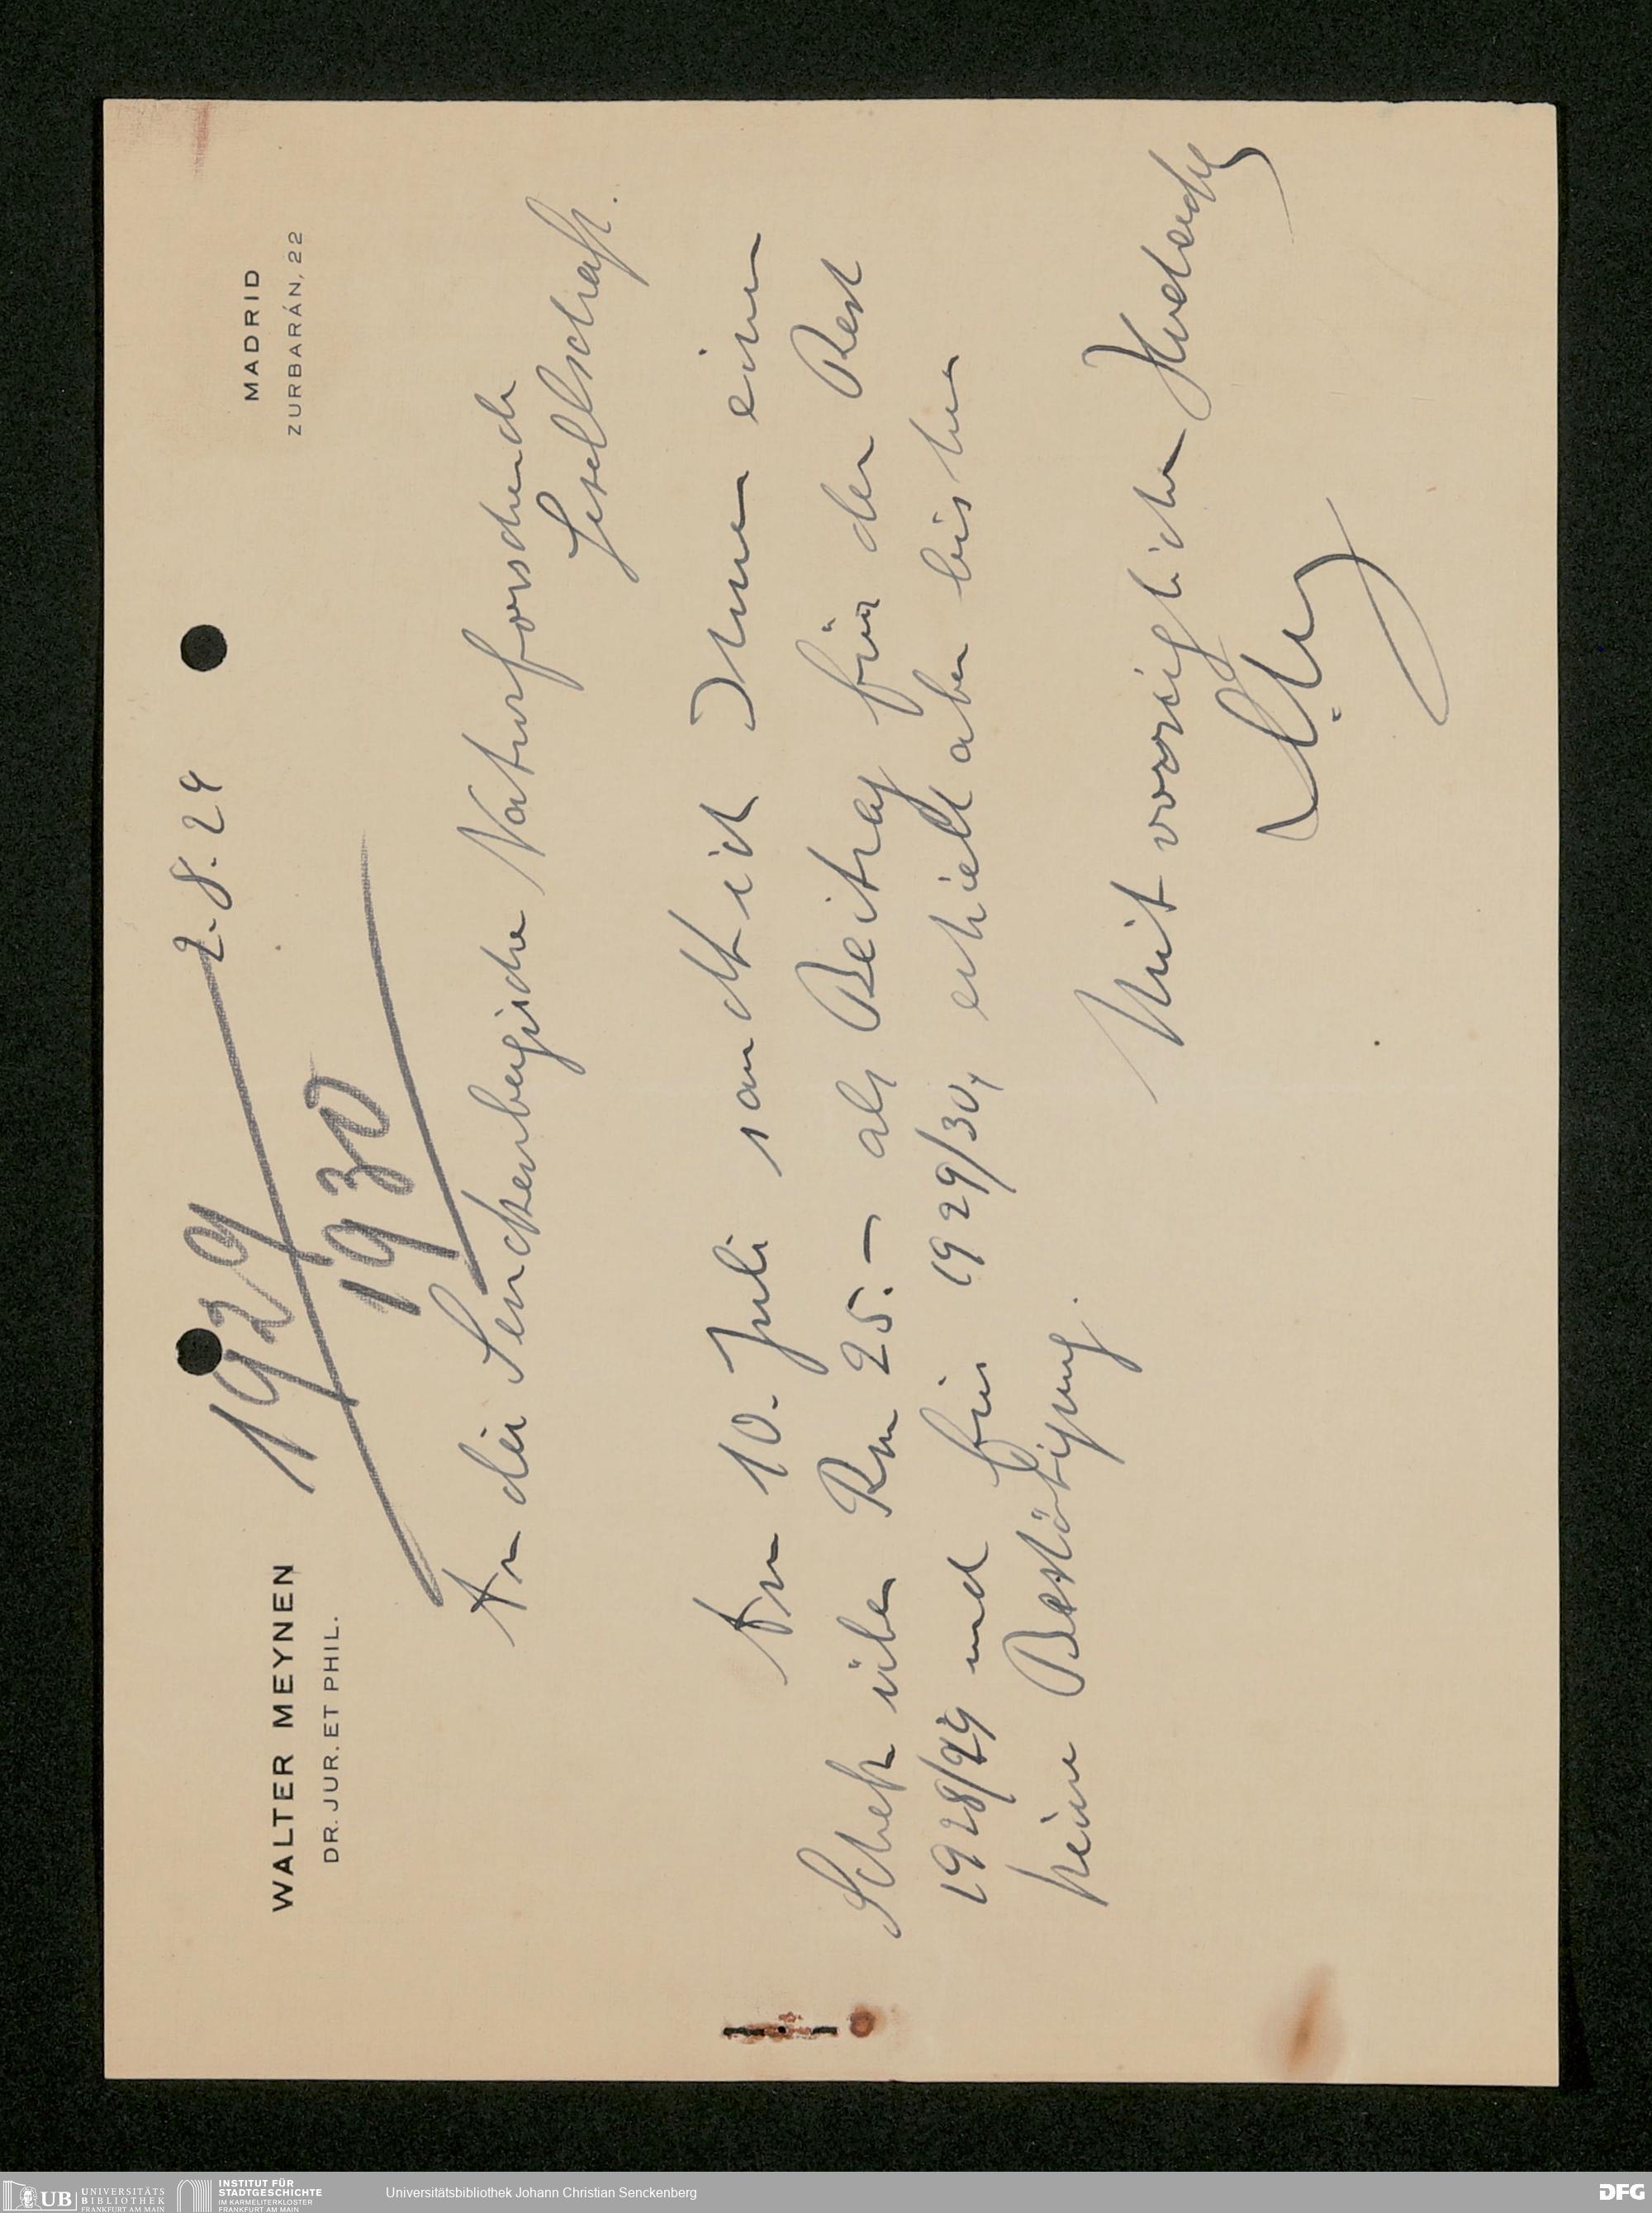 WALTER MEYNEN
DR. JUR. ET PHIL.
MADRID
ZURBARÁN, 22
2.8.29
1929
1930
An die Senckenbergische Naturforschende
Gesellschaft.
Am 10. Juli sandte ich Ihnen einen
Scheck über Rm 25.— als Beitrag für den Rest
1928/29 und für 1929/30, erhielt aber bisher
keine Bestätigung.
Mit vorzüglicher Hochacht
UB
UNIVERSITÄTS
BIBLIOTHEK
FRANKFURT AM MAIN
INSTITUT FÜR
STADTGESCHICHTE
IM KARMELITERKLOSTER
FRANKFURT AM MAIN
Universitätsbibliothek Johann Christian Senckenberg
DFG